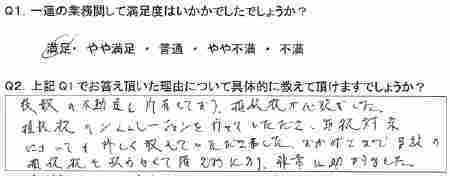 Q1. 一連の業務関して満足度はいかかでしたでしょうか？
満足・ やや満足 ・ 普通 ・ やや不満 ・ 不満
Q2. 上記Q1でお答え頂いた理由について具体的に教えて頂けますでしょうか？
複数の不動産を所有しており、相続税が心配でした。
相続税のシミュレーションを行っていただき、節税対策
についても詳しく教えていただきました。おかげさまで
相続税を 非常に助かりました。